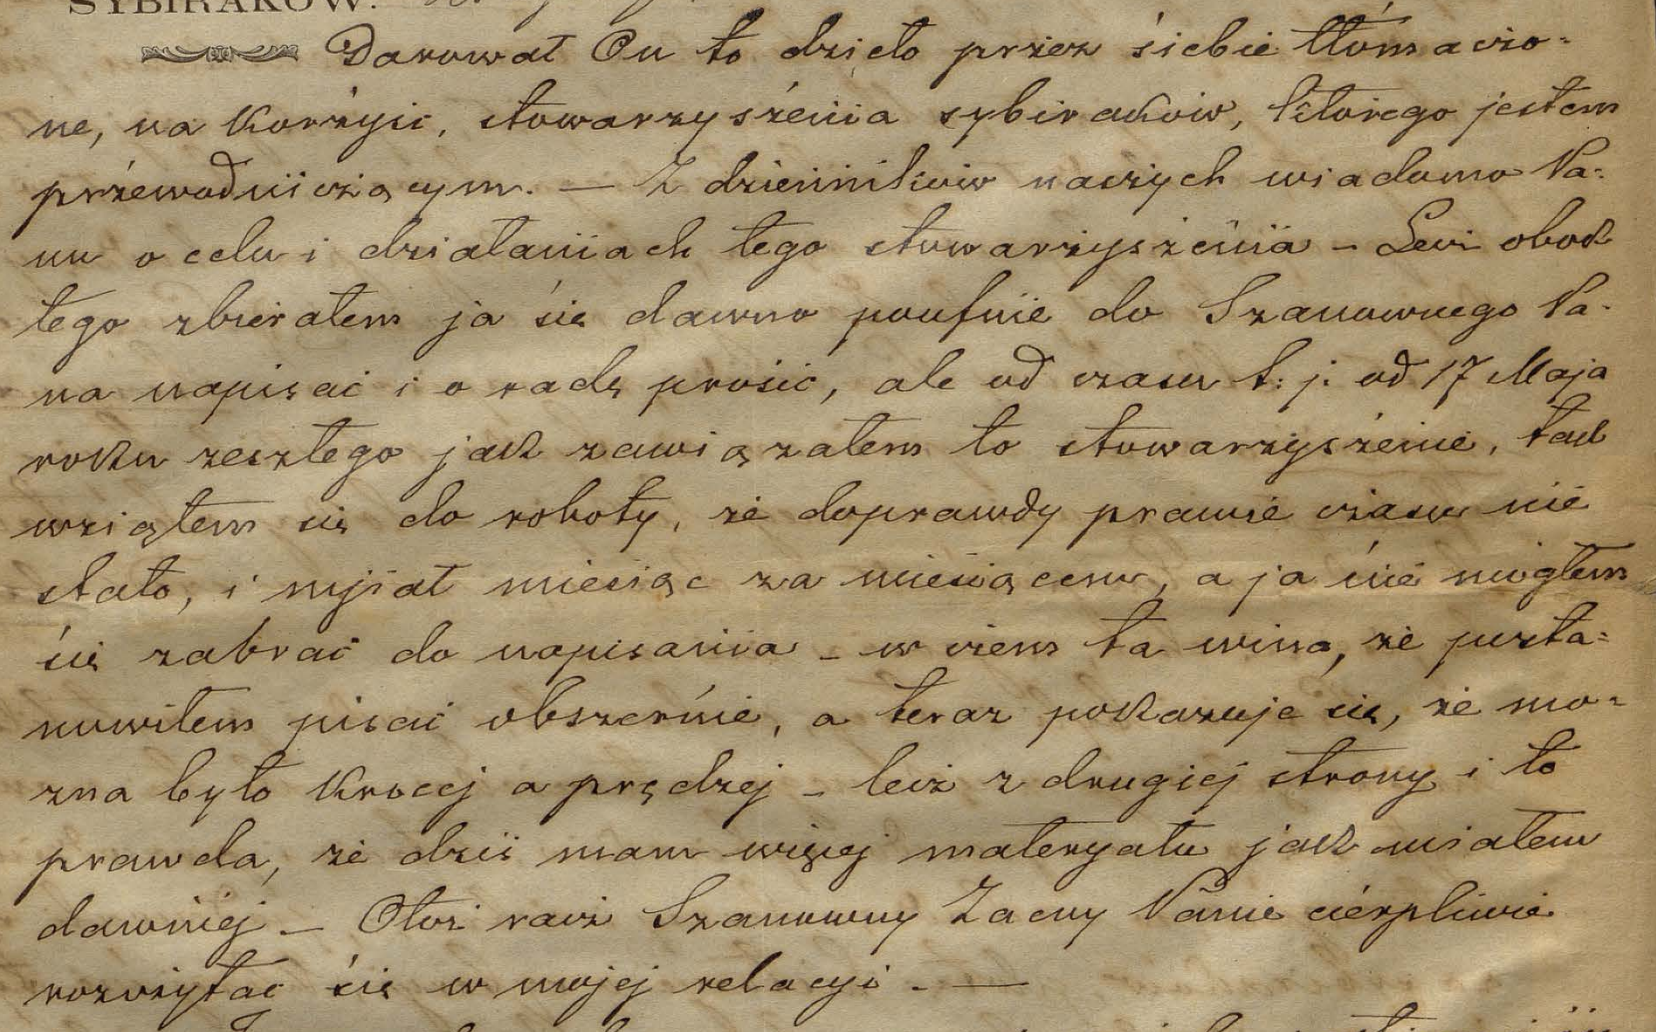 SYBIRAKÓW.
Darował On to dzieło przez siebie tłómaczo-
ne, na korzyść, stowarzyszenia sybiraków, którego jestem
przewodniczącym. — Z dzienników naszych wiadomo Pa-
nu o celu i działaniach tego stowarzyszenia – Lecz obok
tego zbierałem ja się dawno poufnie do Szanownego Pa-
na napisać i o radę prosić, ale od czasu t: j: od 17 Maja
roku zeszłego jak zawiązałem to stowarzyszenie, tak
wziąłem się do roboty, że doprawdy prawie czasu nie
stało, i mijał miesiąc za miesiącem, a ja nie mogłem
się zabrać do napisania – w czem ta wina, że posta-
nowiłem pisać obszernie, a teraz pokazuje się, że mo-
zna było krócej a prędzej – lecz z drugiej strony i to
prawda, że dziś mam więcej materyału jak miałem
dawniej – Otóż racz Szanowny Zacny Panie cierpliwie
rozczytać się w mojej relacyi. —